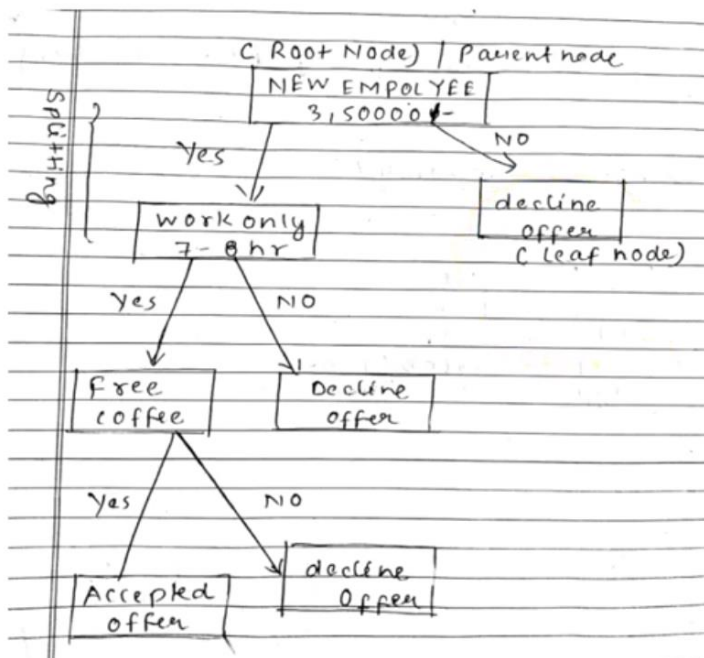 C Root Node) | Parent node
NEW EMPOLYEE
3,50000/-
Splitting
Yes
NO
decline
offer
(leaf node)
work only
7-8hr
Yes
NO
Free
coffee
Decline
offer
Yes
NO
Accepted
offer
decline
offer